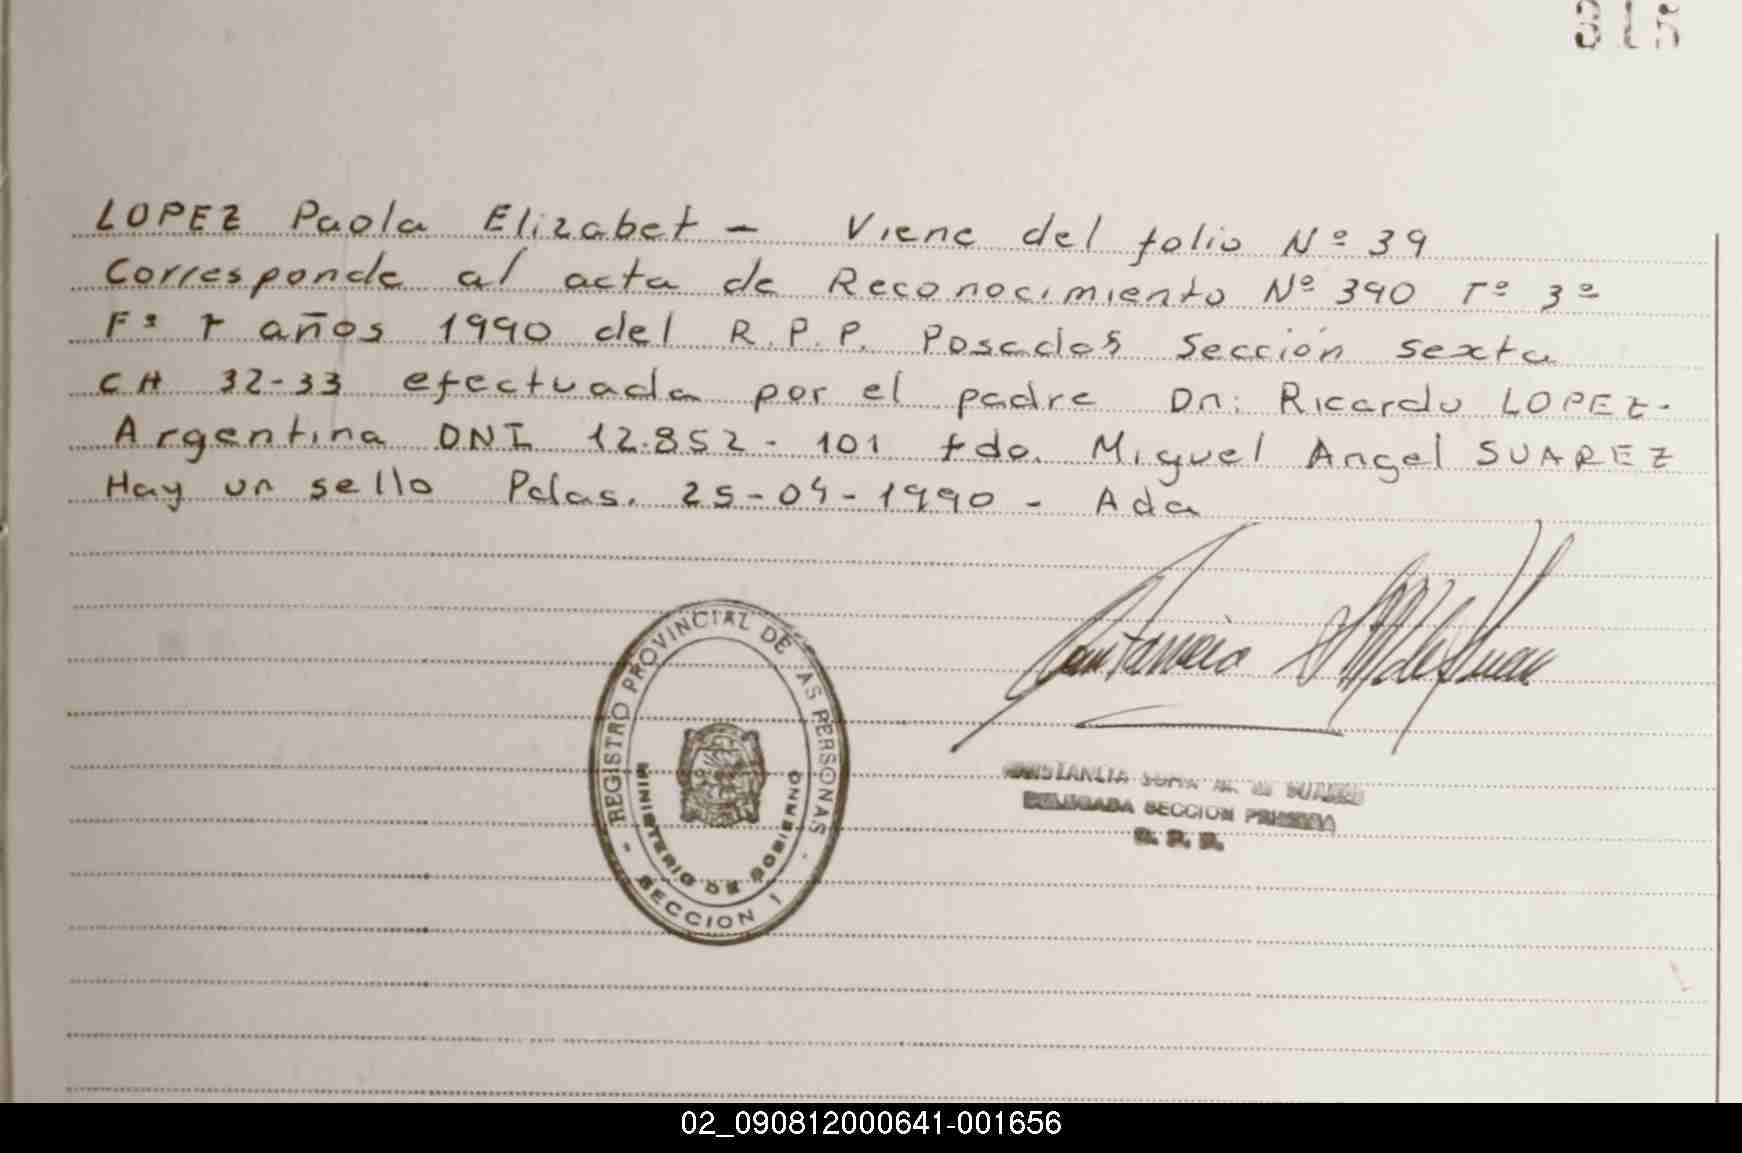 315
LOPEZ Paola Elizabet - Viene del folio Nº 39
Corresponde al acta de Reconocimiento Nº 390 Tº 3º
Fº 7 años 1990 del R.P.P. Posadas Sección sexta
CH 32-33 efectuada por el padre Dn: Ricardo LOPEZ-
Argentina DNI 12.852-101 fdo. Miguel Angel SUAREZ
Hay un sello Pdas. 25-04-1990 - Ada
REGISTRO PROVINCIAL DE LAS PERSONAS
MINISTERIO DE GOBIERNO
SECCION 1
SUAREZ
DELEGADA SECCION PRIMERA
02_090812000641-001656